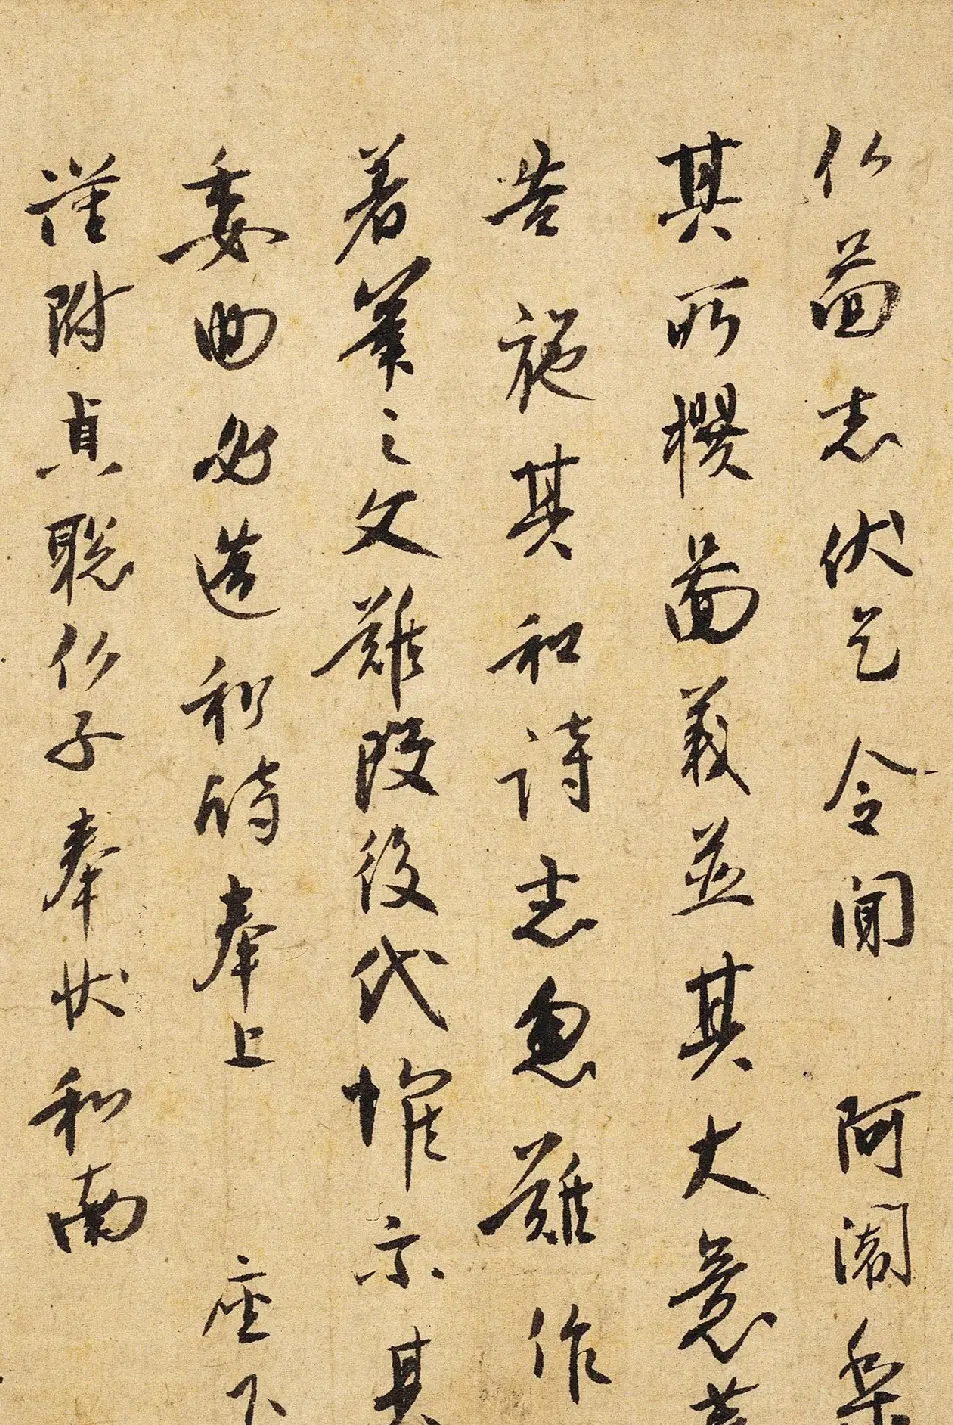 仏圖者伏乞令聞 阿闍梨
其所撰圖義並其大意等
告施其和詩者忽難作
著筆之文難改後代惟示其
委曲必造和詩奉上 座下
謹附貞聡仏子奉状和南